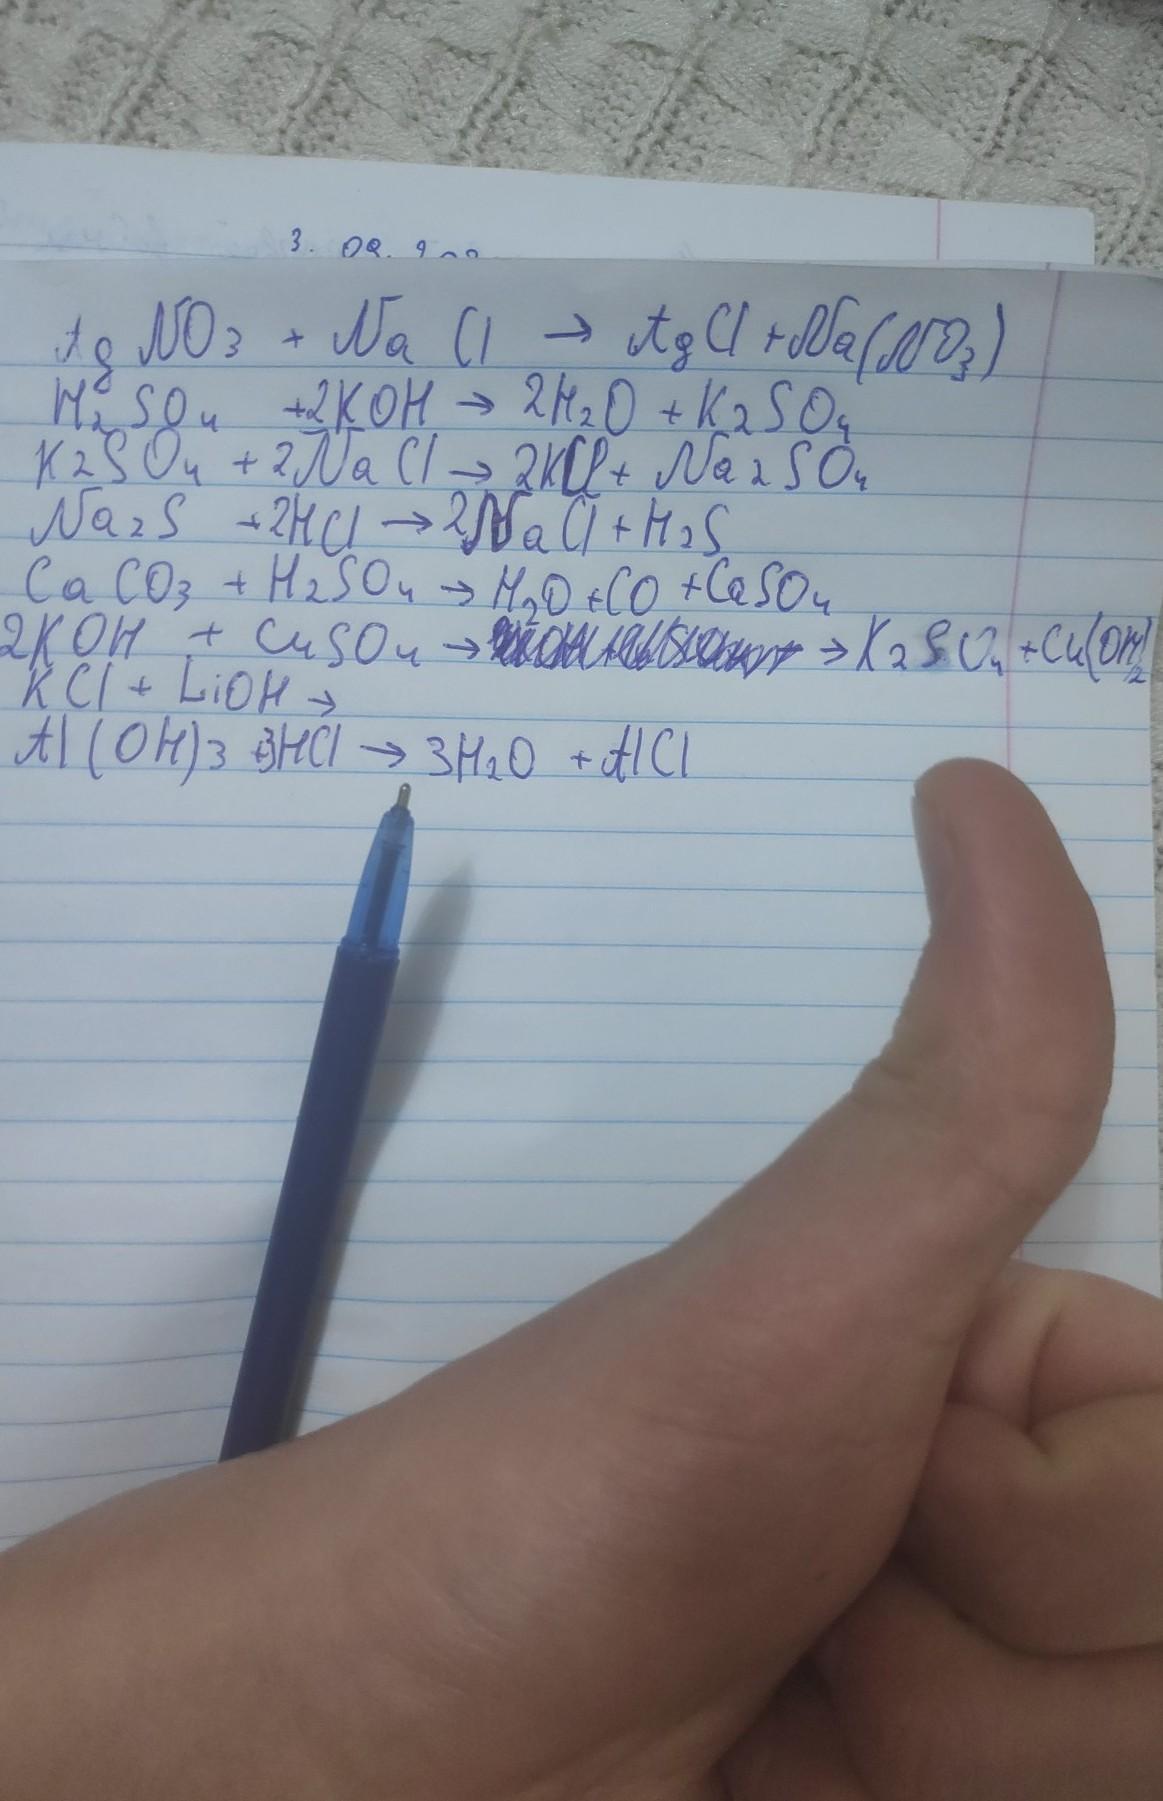 3. 09. 202
AgNO3 + NaCl → AgCl + Na(NO3)
H2SO4 + 2KOH → 2H2O + K2SO4
K2SO4 + 2NaCl → 2KCl + Na2SO4
Na2S + 2HCl → 2NaCl + H2S
CaCO3 + H2SO4 → H2O + CO + CaSO4
2KOH + CuSO4 → → K2SO4 + Cu(OH)2
KCl + LiOH →
Al(OH)3 + 3HCl → 3H2O + AlCl